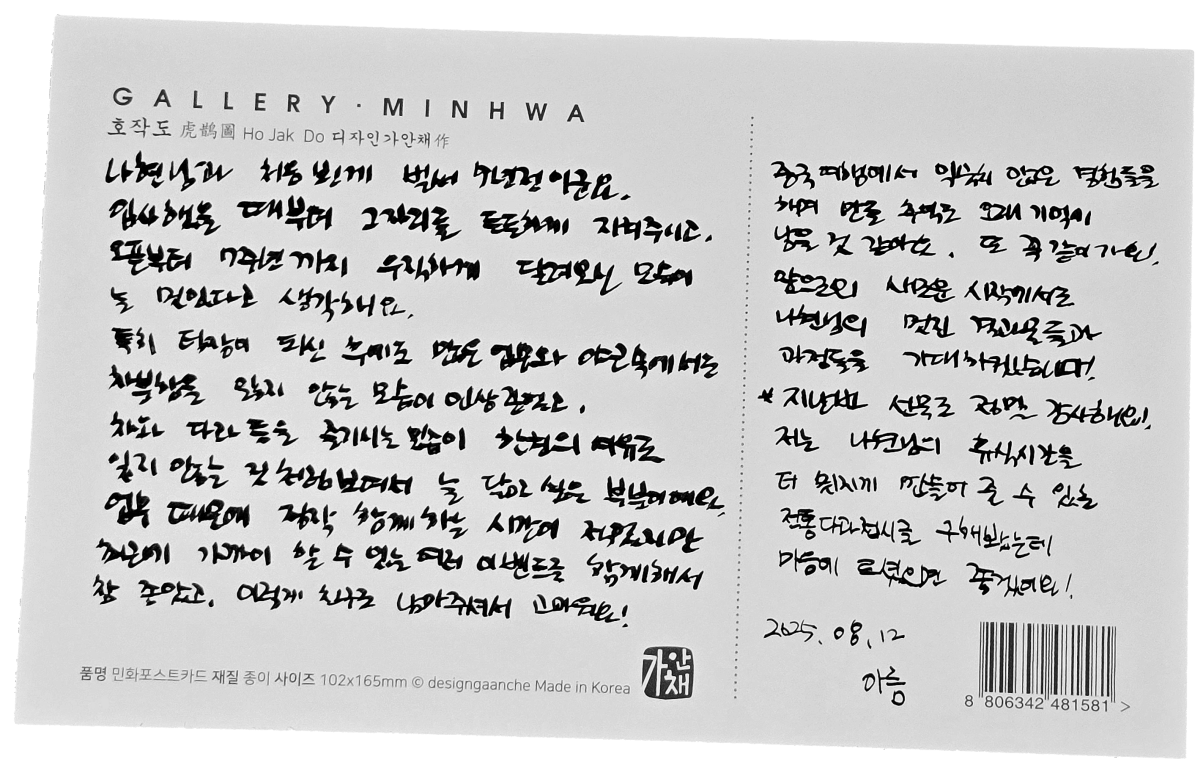 GALLERY·MINHWA
호작도 虎鵲圖 Ho Jak Do 디자인가안채作
나현님과 처음 본게 벌써 7년전이군요.
입사했을 때부터 그자리를 든든하게 지켜주시고,
오픈부터 7주년까지 우직하게 달려오신 모습이
늘 멋있다고 생각해요.
특히 팀장이 되신 후에도 많은 업무와 야근속에서도
차분함을 잃지 않는 모습이 인상깊었고,
차와 다과 등을 즐기시는 모습이 한켠의 여유로
잃지 않는 것처럼보여서 늘 닮고 싶은 부분이예요.
업무 때문에 정작 함께하는 시간이 적었지만
최근에 가까이 할 수 있는 여러 이벤트를 함께해서
참 좋았고, 이렇게 친구로 남아주셔서 고마워요!
중국 여행에서 익숙치 않은 경험들을
하며 만든 추억도 오래 기억에
남을 것 같아요. 또 꼭 같이가요!
앞으로의 새로운 시작에서도
나현님의 멋진 결과물들과
과정들을 기대하겠습니다!
* 지난번 선물도 정말 감사해요!
저는 나현님의 휴식시간을
더 멋지게 만들어 줄 수 있는
전통다과접시를 구해봤는데
마음에 드셨으면 좋겠어요!
2025.08.12
아름
품명 민화포스트카드 재질 종이 사이즈 102x165mm © designgaanche Made in Korea
가안채
8 806342 481581 >